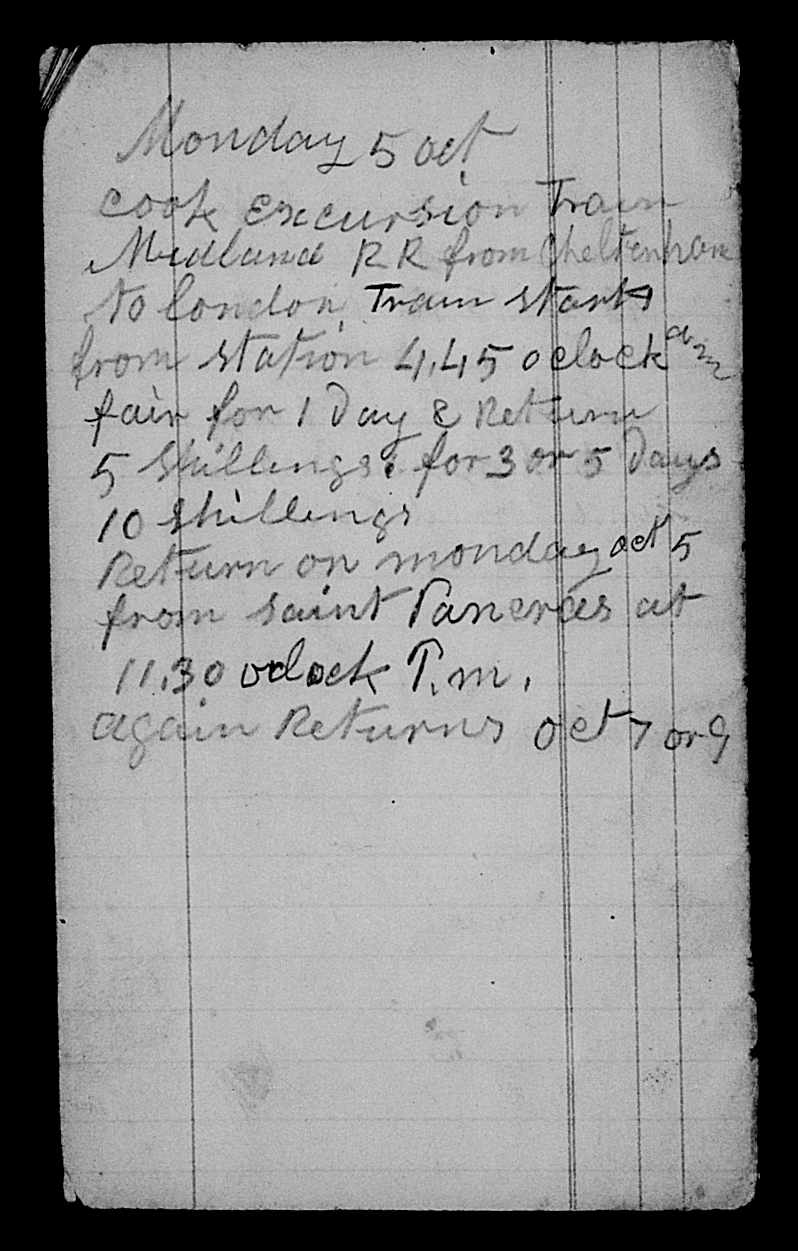 Monday 5 oct
cook Excursion Train
Midland RR from Cheltenham
to london Train starts
from station 4.45 oclock am
fair for 1 Day & Return
5 Shillings. for 3 or 5 Days
10 shillings
Return on monday oct 5
from saint Pancras at
11.30 oclock P.m.
again Returns oct 7 or 9